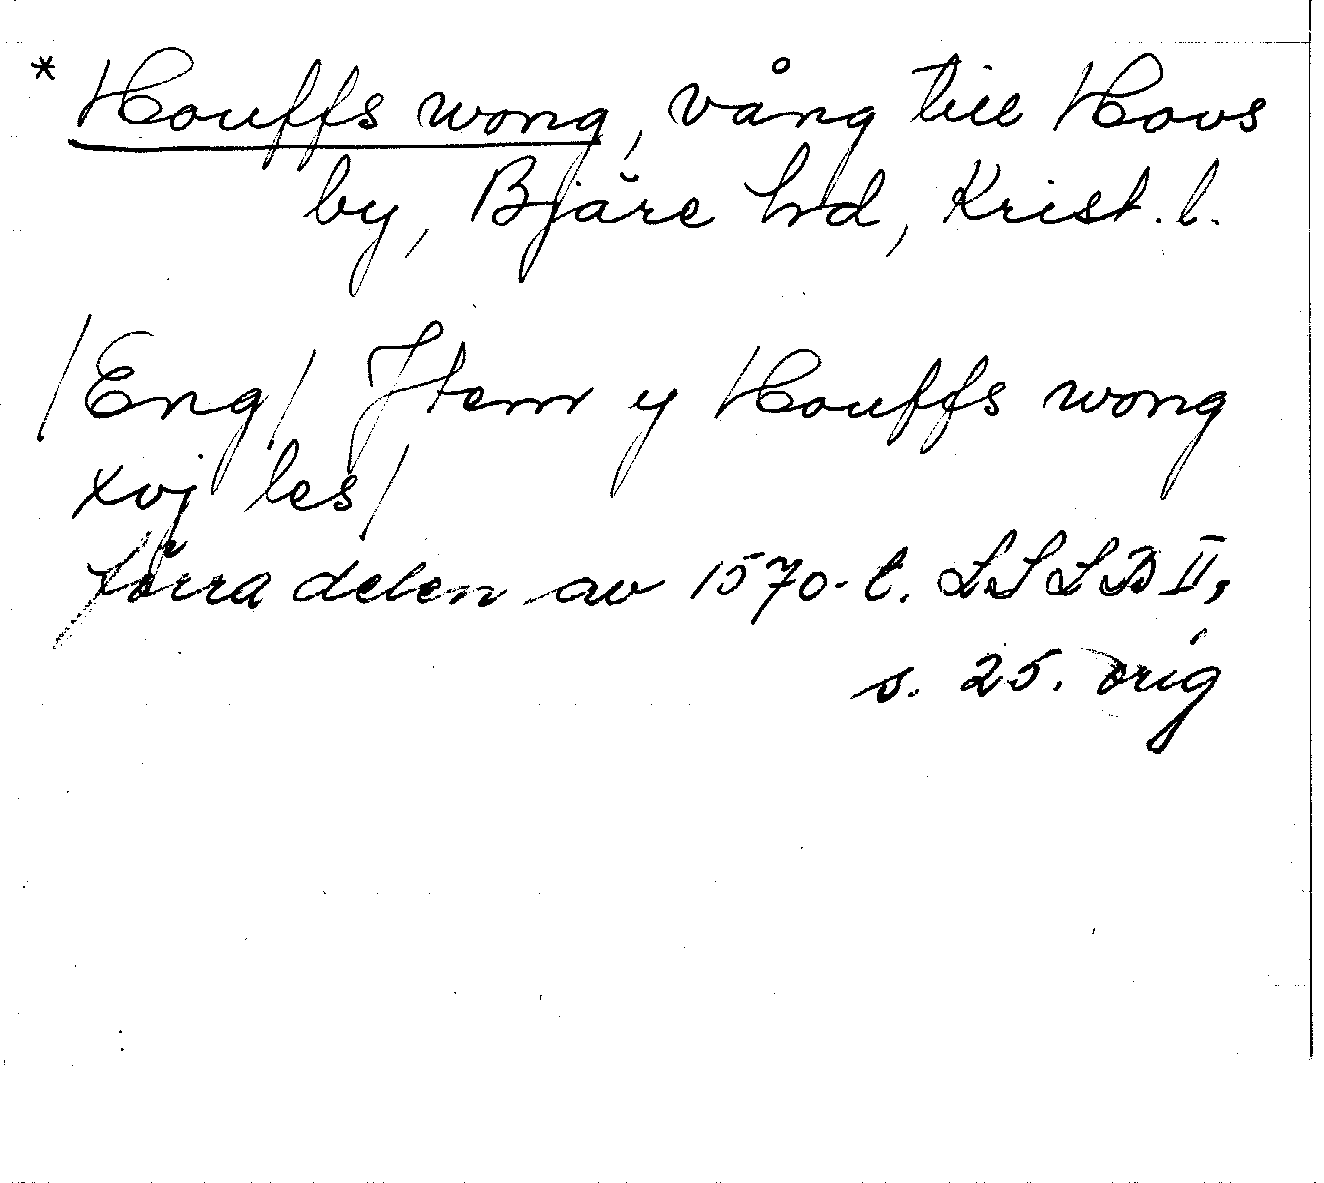 * Houffs wong, vång till Hovs
by, Bjäre hrd, Krist. l.
/Eng/ Jtem y Houffs wong
xvj les/
förra delen av 1570-t. LSLB II,
s. 25. orig